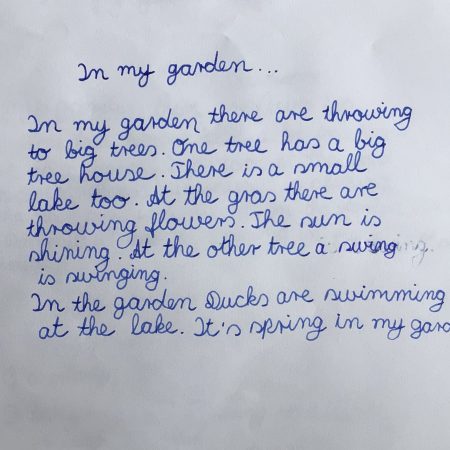 In my garden...
In my garden there are throwing
to big trees. One tree has a big
tree house. There is a small
lake too. At the gras there are
throwing flowers. The sun is
shining. At the other tree a swing
is swinging.
In the garden Ducks are swimming
at the lake. It's spring in my gard